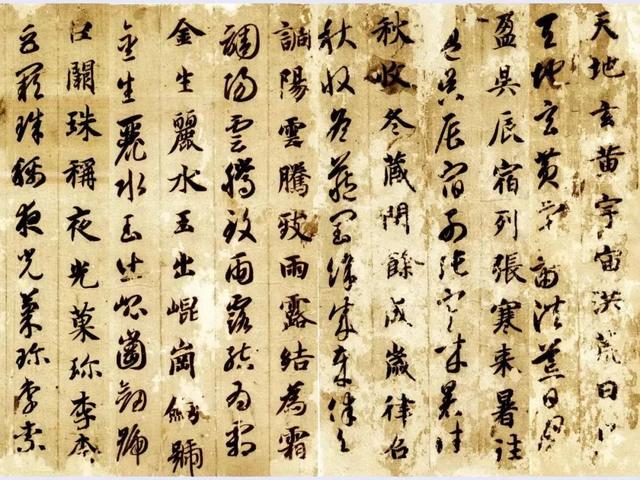 天地玄黄宇宙洪荒日月
天地玄黄宇宙洪荒日月
盈昃辰宿列張寒来暑往
盈昃辰宿列張寒来暑往
秋收冬蔵閏餘成歲律召
秋收冬蔵閏餘成歲律召
調陽雲騰致雨露結為霜
調陽雲騰致雨露結為霜
金生麗水玉出崐崗劒號
金生麗水玉出崐崗劒號
巨闕珠稱夜光菓珍李柰
巨闕珠稱夜光菓珍李柰